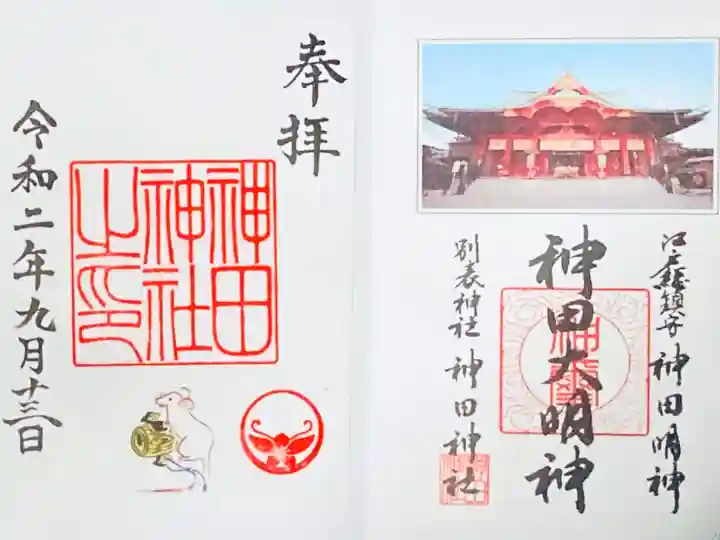 奉拝
神田
神社
之印
令和二年九月十三日
江戸総鎮守 神田明神
神田大明神
別表神社 神田神社